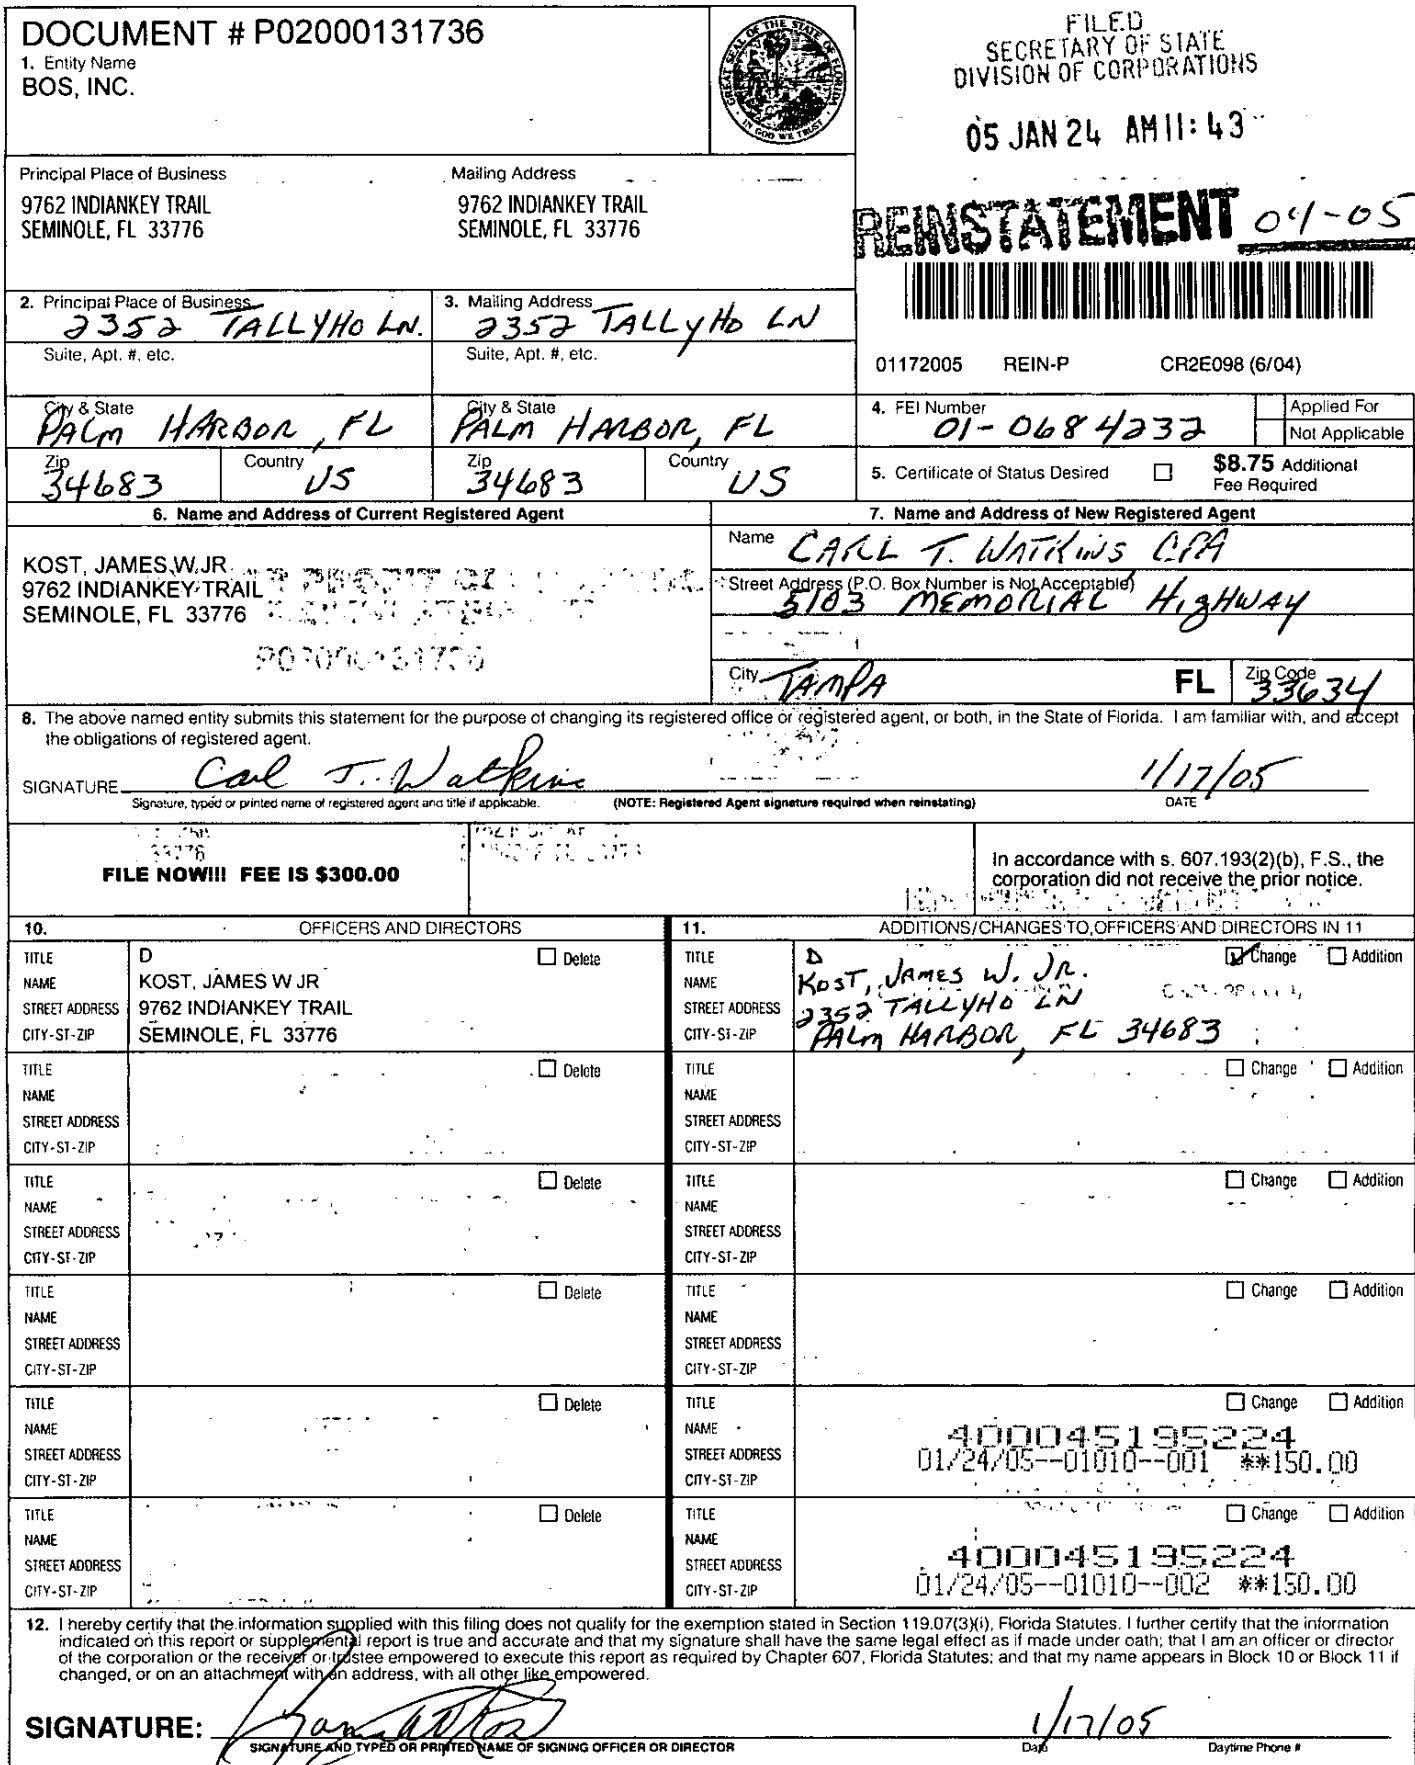 DOCUMENT # P02000131736
1. Entity Name
BOS, INC.
GREAT SEAL OF THE STATE OF FLORIDA
IN GOD WE TRUST
FILED
SECRETARY OF STATE
DIVISION OF CORPORATIONS
05 JAN 24 AM 11:43
Principal Place of Business
9762 INDIANKEY TRAIL
SEMINOLE, FL 33776
Mailing Address
9762 INDIANKEY TRAIL
SEMINOLE, FL 33776
REINSTATEMENT 04-05
2. Principal Place of Business
2352 TALLYHO LN.
3. Mailing Address
2352 TALLYHO LN
Suite, Apt. #, etc.
Suite, Apt. #, etc.
01172005 REIN-P CR2E098 (6/04)
City & State
PALM HARBOR, FL
City & State
PALM HARBOR, FL
4. FEI Number
01-0684232
Applied For
Not Applicable
Zip
34683
Country
US
Zip
34683
Country
US
5. Certificate of Status Desired
$8.75 Additional
Fee Required
6. Name and Address of Current Registered Agent
7. Name and Address of New Registered Agent
KOST, JAMES W JR
9762 INDIANKEY TRAIL
SEMINOLE, FL 33776
P02000131736
Name CARL T. WATKINS CPA
Street Address (P.O. Box Number is Not Acceptable)
5103 MEMORIAL HIGHWAY
City TAMPA FL Zip Code 33634
8. The above named entity submits this statement for the purpose of changing its registered office or registered agent, or both, in the State of Florida. I am familiar with, and accept
the obligations of registered agent.
SIGNATURE Carl T. Watkins 1/17/05
Signature, typed or printed name of registered agent and title if applicable. (NOTE: Registered Agent signature required when reinstating) DATE
FILE NOW!!! FEE IS $300.00
In accordance with s. 607.193(2)(b), F.S., the
corporation did not receive the prior notice.
10. OFFICERS AND DIRECTORS
11. ADDITIONS/CHANGES TO OFFICERS AND DIRECTORS IN 11
TITLE D Delete
NAME KOST, JAMES W JR
STREET ADDRESS 9762 INDIANKEY TRAIL
CITY-ST-ZIP SEMINOLE, FL 33776
TITLE D Change Addition
NAME KOST, JAMES W. JR.
STREET ADDRESS 2352 TALLYHO LN
CITY-ST-ZIP PALM HARBOR, FL 34683
TITLE Delete
NAME
STREET ADDRESS
CITY-ST-ZIP
TITLE Change Addition
NAME
STREET ADDRESS
CITY-ST-ZIP
TITLE Delete
NAME
STREET ADDRESS
CITY-ST-ZIP
TITLE Change Addition
NAME
STREET ADDRESS
CITY-ST-ZIP
TITLE Delete
NAME
STREET ADDRESS
CITY-ST-ZIP
TITLE Change Addition
NAME
STREET ADDRESS
CITY-ST-ZIP
TITLE Delete
NAME
STREET ADDRESS
CITY-ST-ZIP
TITLE Change Addition
NAME 400045195224
STREET ADDRESS 01/24/05--01010--001 **150.00
CITY-ST-ZIP
TITLE Delete
NAME
STREET ADDRESS
CITY-ST-ZIP
TITLE Change Addition
NAME
STREET ADDRESS 400045195224
CITY-ST-ZIP 01/24/05--01010--002 **150.00
12. I hereby certify that the information supplied with this filing does not qualify for the exemption stated in Section 119.07(3)(i), Florida Statutes. I further certify that the information
indicated on this report or supplemental report is true and accurate and that my signature shall have the same legal effect as if made under oath; that I am an officer or director
of the corporation or the receiver or trustee empowered to execute this report as required by Chapter 607, Florida Statutes; and that my name appears in Block 10 or Block 11 if
changed, or on an attachment with an address, with all other like empowered.
SIGNATURE: 1/17/05
SIGNATURE AND TYPED OR PRINTED NAME OF SIGNING OFFICER OR DIRECTOR Date Daytime Phone #